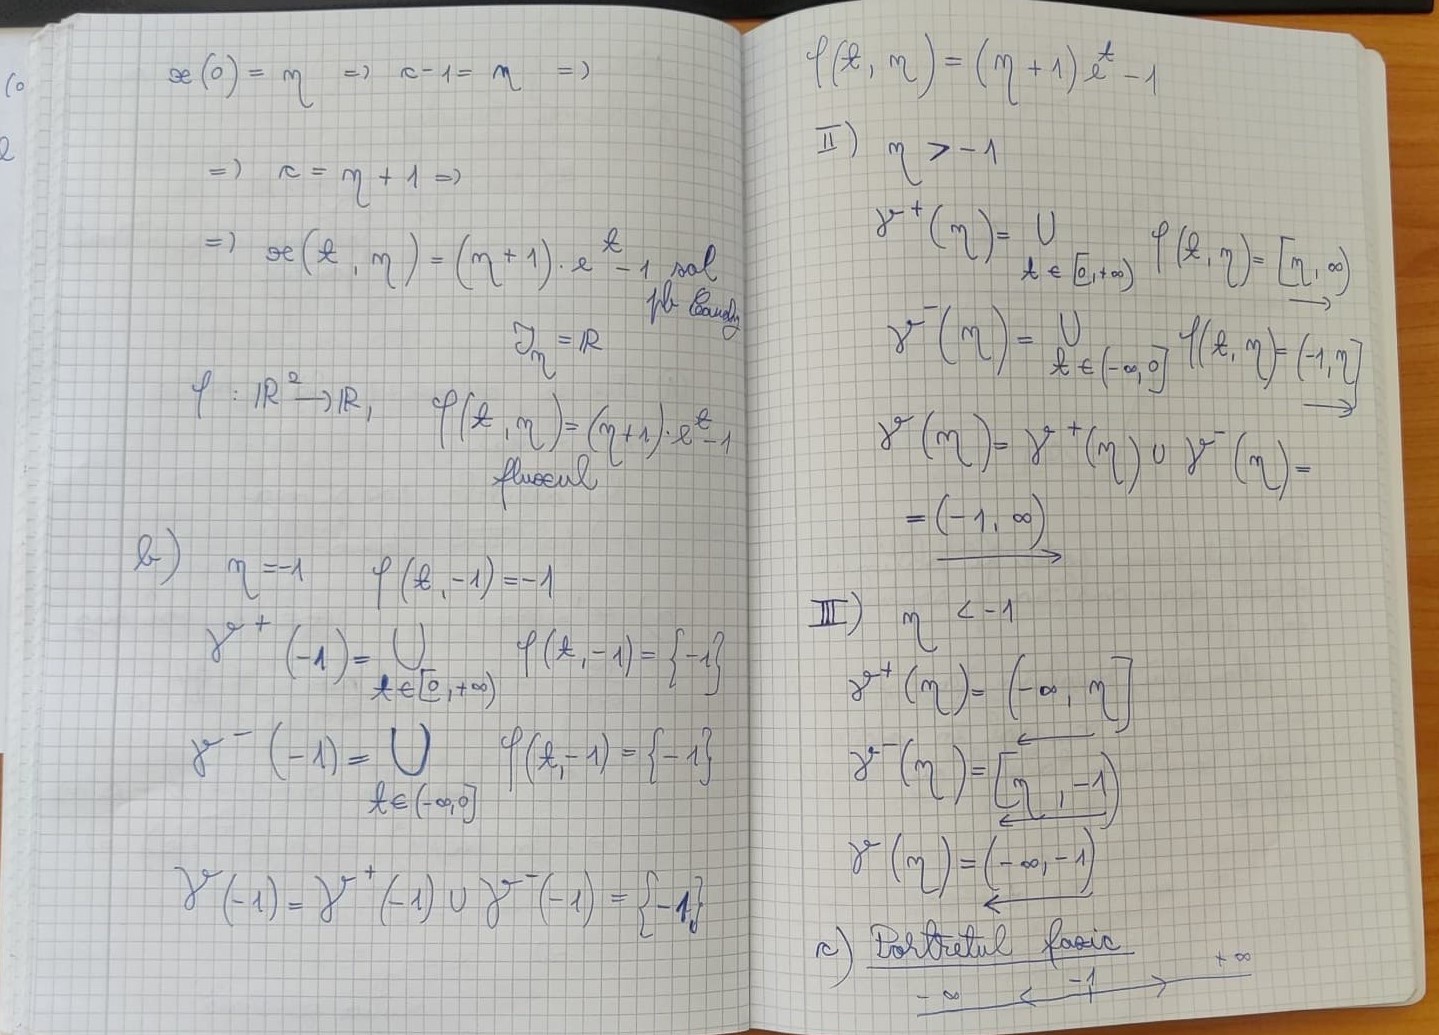 x(0) = η => c-1 = η =>
=> c = η + 1 =>
=> x(t, η) = (η+1)·e^t - 1 sol
pb Cauchy
I_η = ℝ
φ : ℝ² → ℝ, φ(t, η) = (η+1)·e^t - 1
fluxul
b) η = -1 φ(t, -1) = -1
γ⁺(-1) = ∪ φ(t, -1) = {-1}
t ∈ [0, +∞)
γ⁻(-1) = ∪ φ(t, -1) = {-1}
t ∈ (-∞, 0]
γ(-1) = γ⁺(-1) ∪ γ⁻(-1) = {-1}
φ(t, η) = (η+1) e^t - 1
II) η > -1
γ⁺(η) = ∪ φ(t, η) = [η, ∞)
t ∈ [0, +∞) →
γ⁻(η) = ∪ φ(t, η) = (-1, η]
t ∈ (-∞, 0] →
γ(η) = γ⁺(η) ∪ γ⁻(η) =
= (-1, ∞)
→
III) η < -1
γ⁺(η) = (-∞, η]
←
γ⁻(η) = [η, -1)
←
γ(η) = (-∞, -1)
←
c) Portretul fazic
-∞ < -1 > +∞